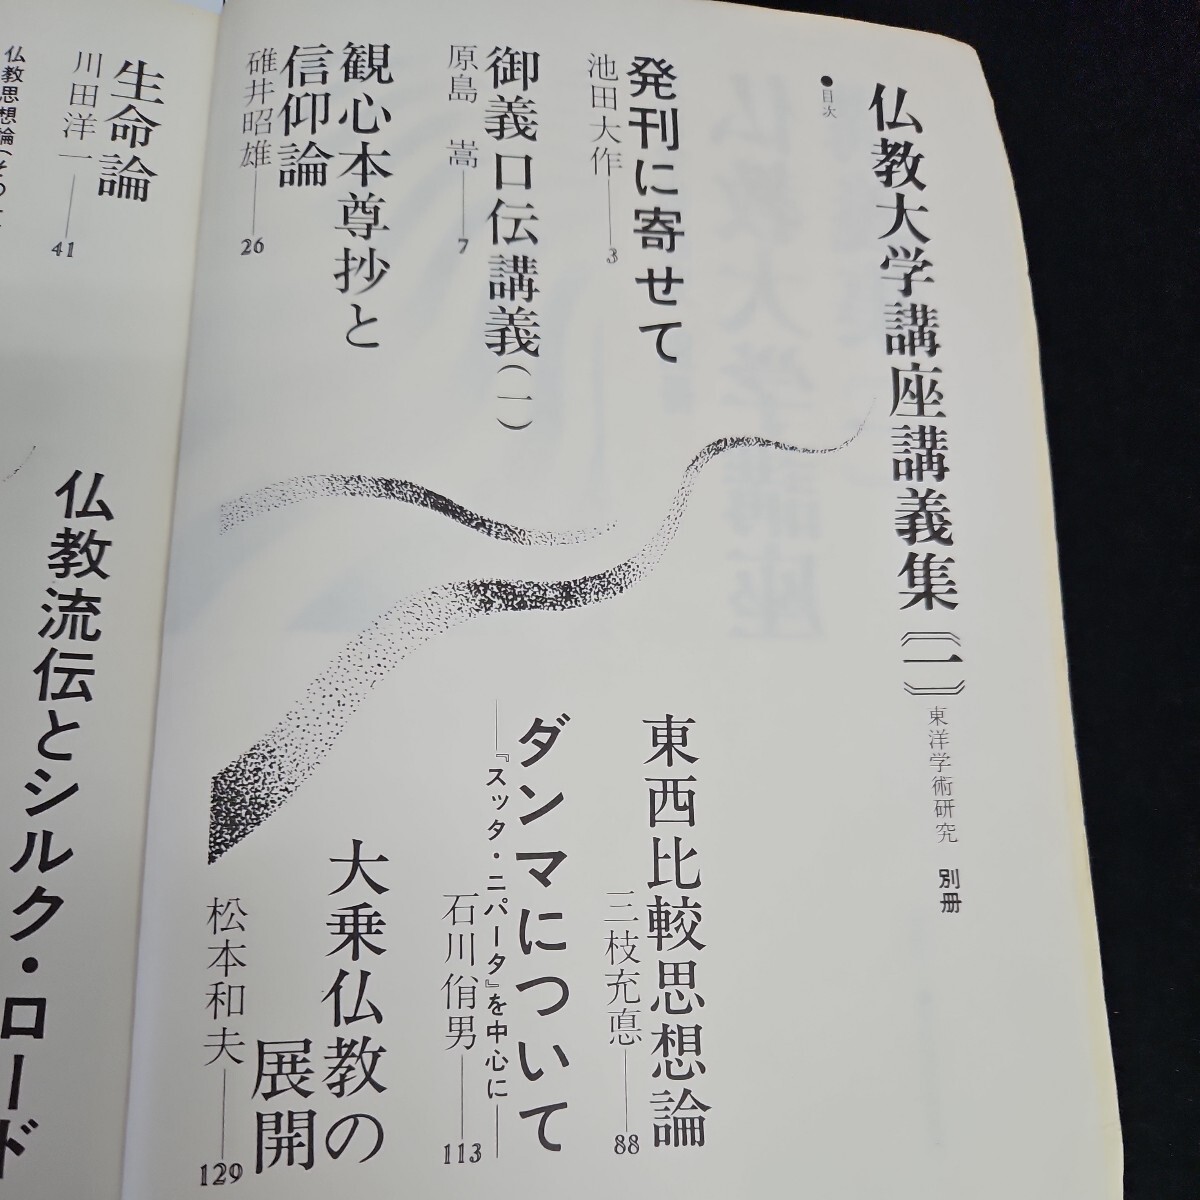 仏教大学講座講義集〔一〕
東洋学術研究 別冊
●目次
発刊に寄せて
池田大作 3
御義口伝講義(一)
原島 嵩 7
観心本尊抄と
信仰論
碓井昭雄 26
生命論
川田洋一 41
仏教思想論(その一
東西比較思想論
三枝充悳 88
ダンマについて
『スッタ・ニパータ』を中心に
石川佾男 113
大乗仏教の
展開
松本和夫 129
仏教流伝とシルク・ロード